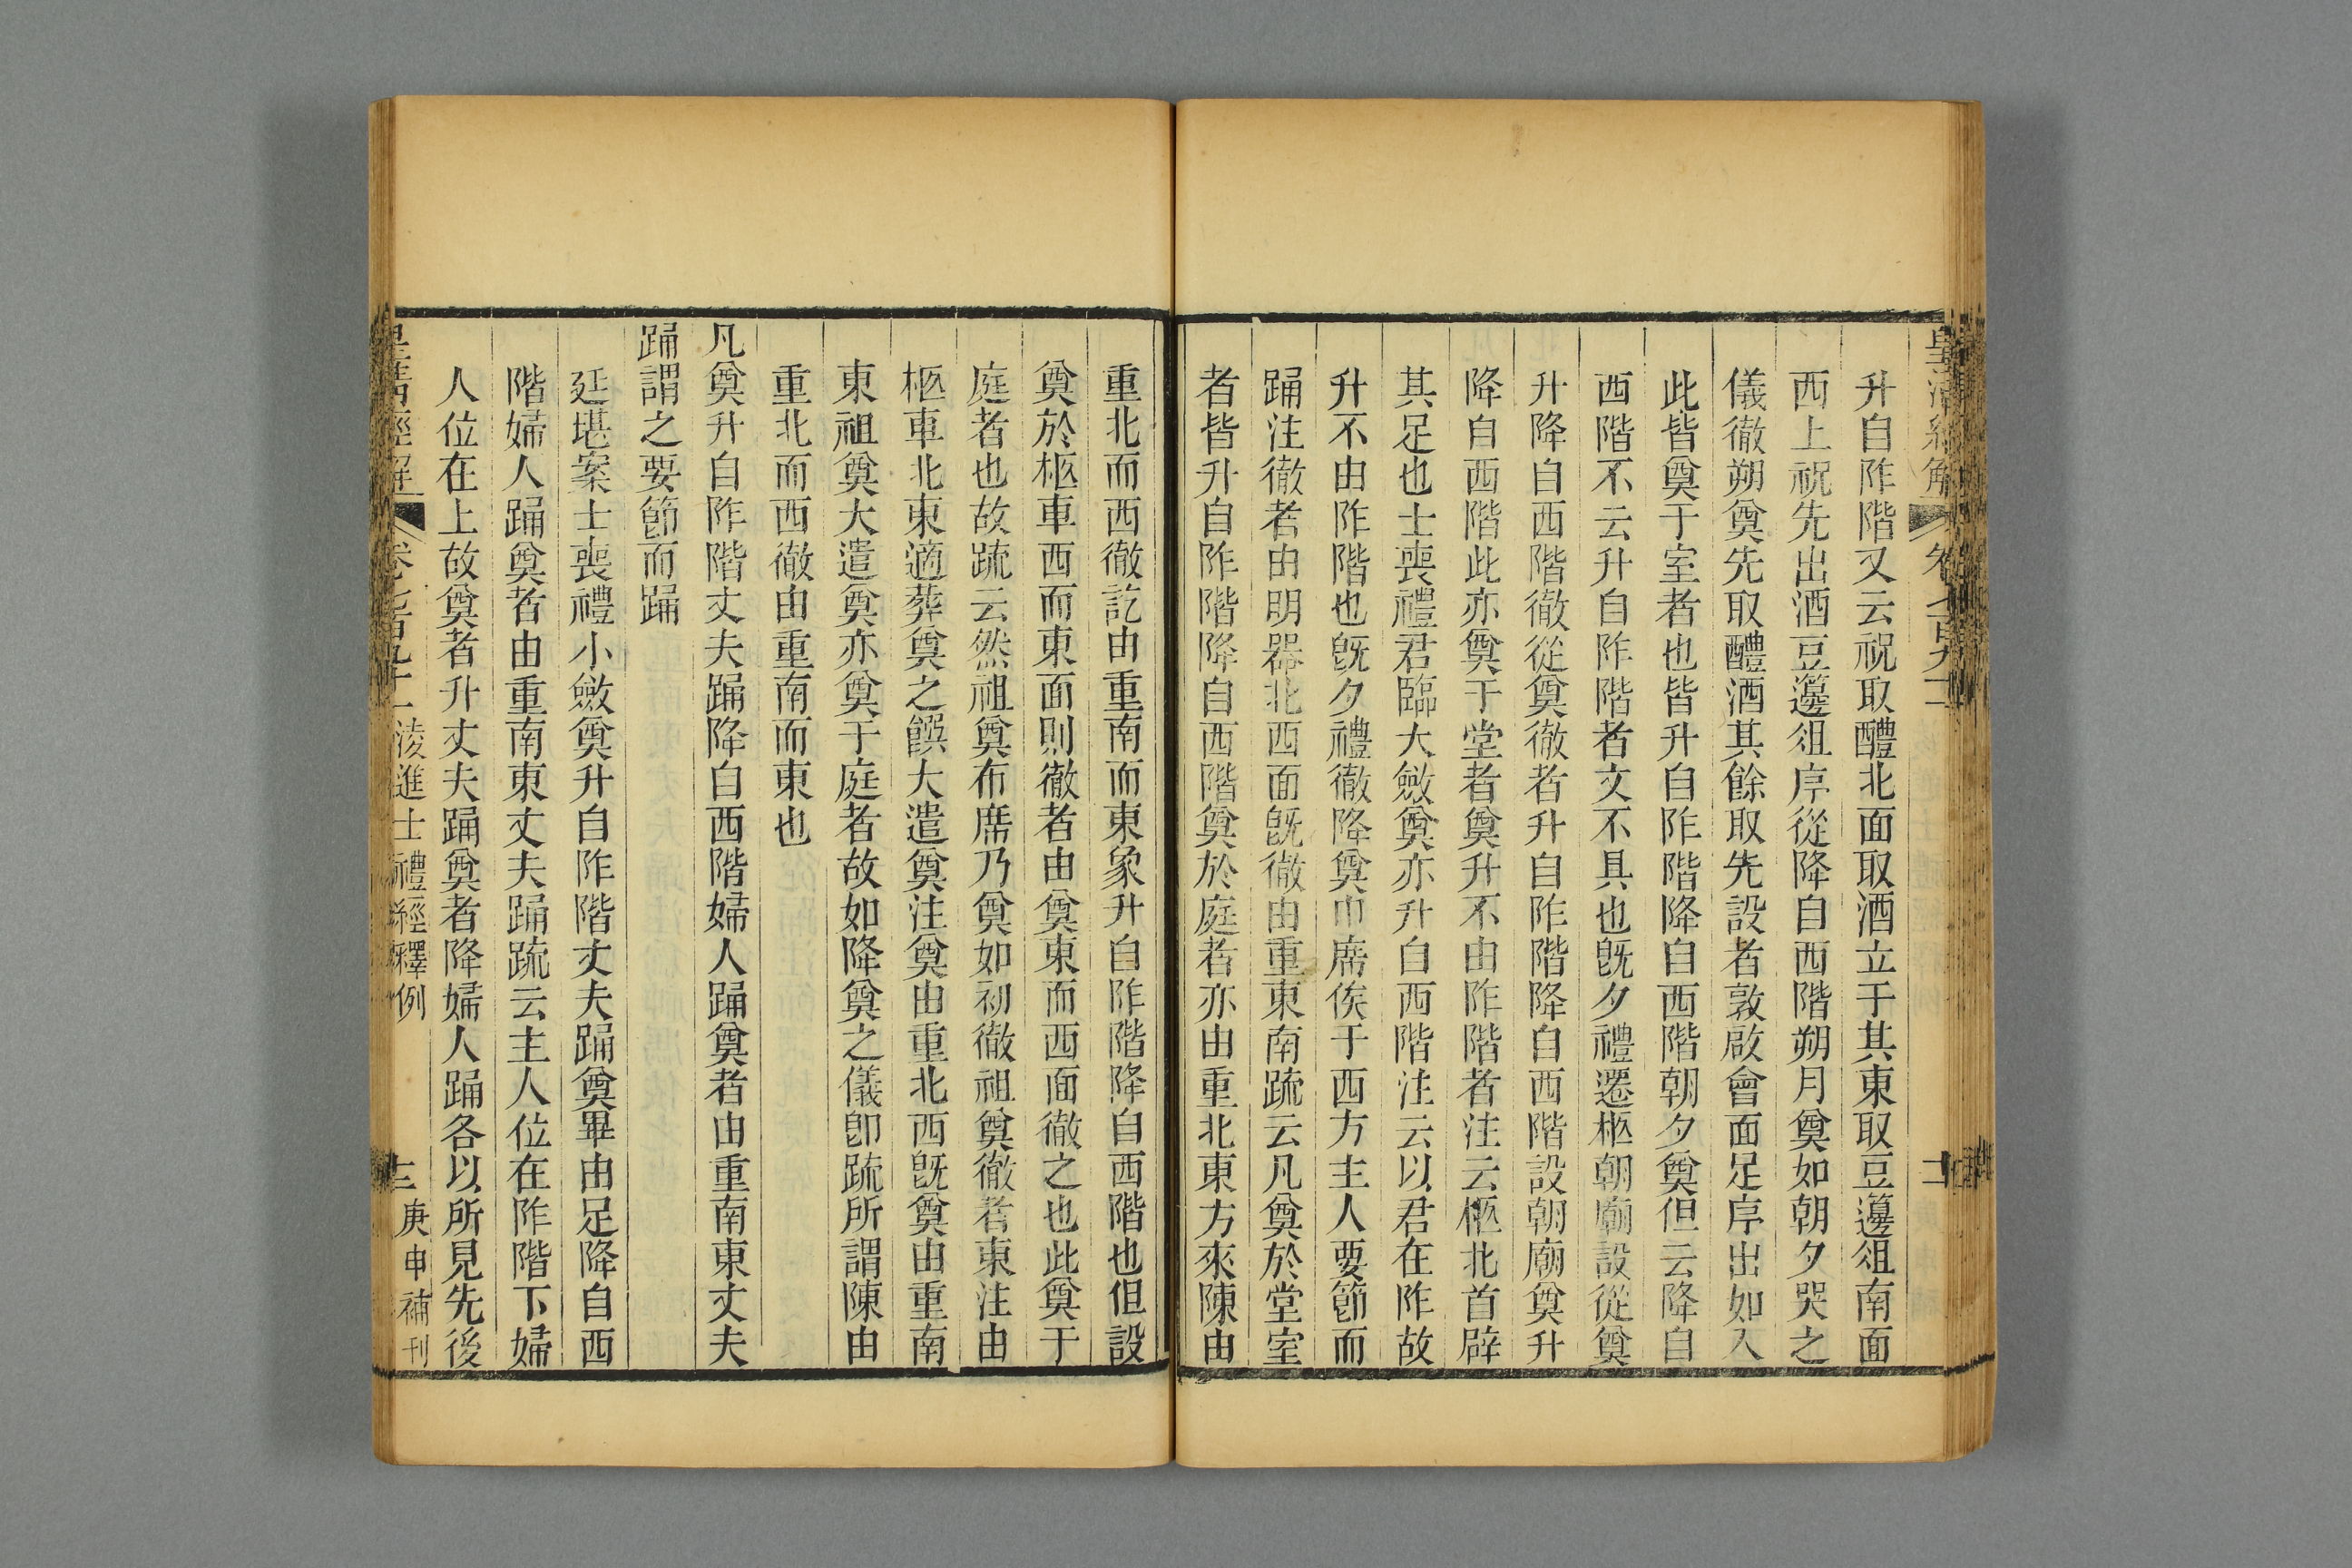 皇清經解 卷七百九十二 十二
升自阼階又云祝取醴北面取酒立于其東取豆籩俎南面
西上祝先出酒豆籩俎序從降自西階朔月奠如朝夕哭之
儀徹朔奠先取醴酒其餘取先設者敦啟會面足序出如入
此皆奠于室者也皆升自阼階降自西階朝夕奠但云降自
西階不云升自阼階者文不具也旣夕禮遷柩朝廟設從奠
升降自西階徹從奠徹者升自阼階降自西階設朝廟奠升
降自西階此亦奠于堂者奠升不由阼階者注云柩北首辟
其足也士喪禮君臨大斂奠亦升自西階注云以君在阼故
升不由阼階也旣夕禮徹降奠巾席俟于西方主人要節而
踊注徹者由明器北西面旣徹由重東南疏云凡奠於堂室
者皆升自阼階降自西階奠於庭者亦由重北東方來陳由
重北而西徹訖由重南而東象升自阼階降自西階也但設
奠於柩車西而東面則徹者由奠東而西面徹之也此奠于
庭者也故疏云然祖奠布席乃奠如初徹祖奠徹者東注由
柩車北東適葬奠之饌大遣奠注奠由重北西旣奠由重南
東祖奠大遣奠亦奠于庭者故如降奠之儀卽疏所謂陳由
重北而西徹由重南而東也
凡奠升自阼階丈夫踊降自西階婦人踊奠者由重南東丈夫
踊謂之要節而踊
廷堪案士喪禮小斂奠升自阼階丈夫踊奠畢由足降自西
階婦人踊奠者由重南東丈夫踊疏云主人位在阼階下婦
人位在上故奠者升丈夫踊奠者降婦人踊各以所見先後
皇清經解 卷七百九十二 淩進士禮經釋例 十三 庚申補刊